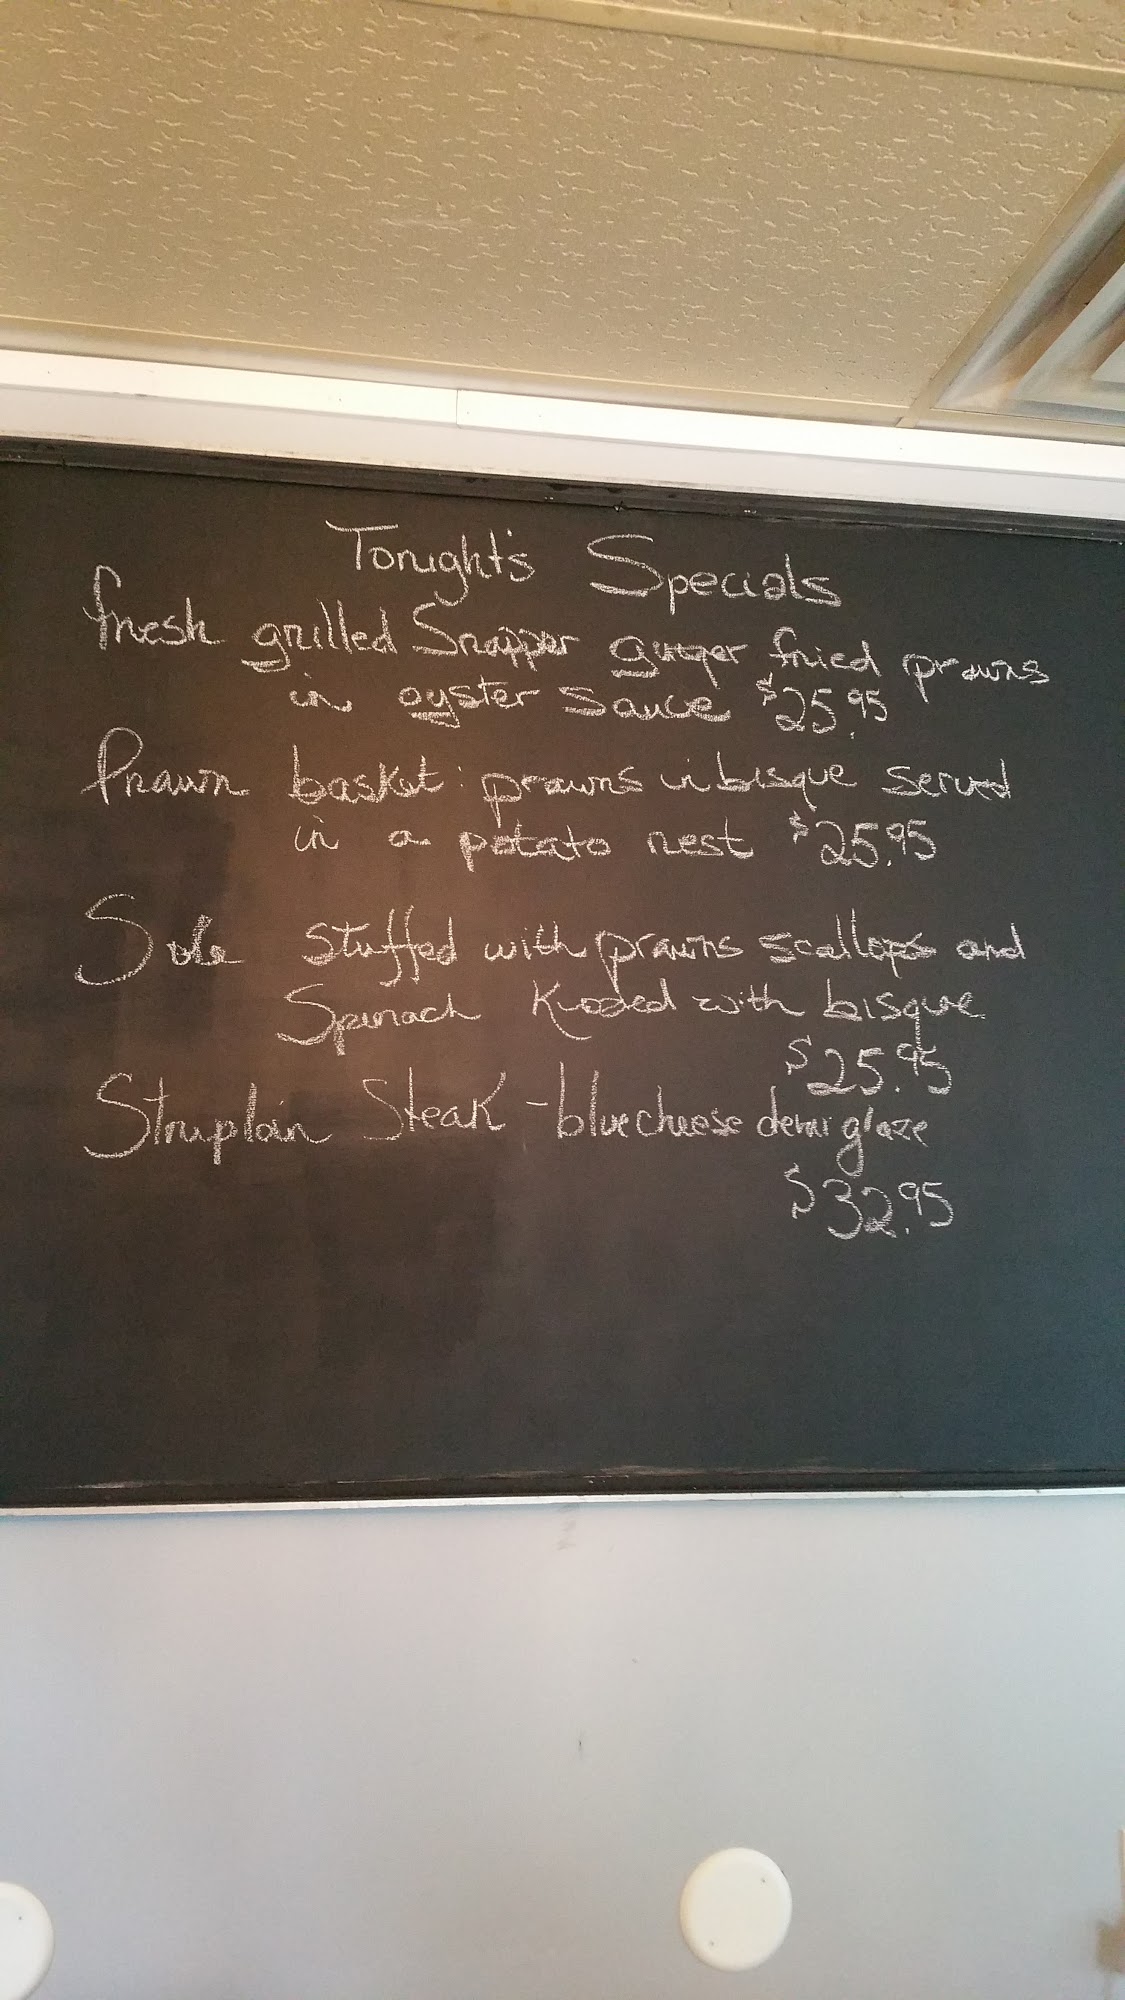 Tonight's Specials
fresh grilled Snapper ginger fried prawns
in oyster sauce $25.95
Prawn basket: prawns in bisque served
in a potato nest $25.95
Sole stuffed with prawns scallops and
Spinach Kissed with bisque
$25.95
Striploin Steak - blue cheese demi glaze
$32.95